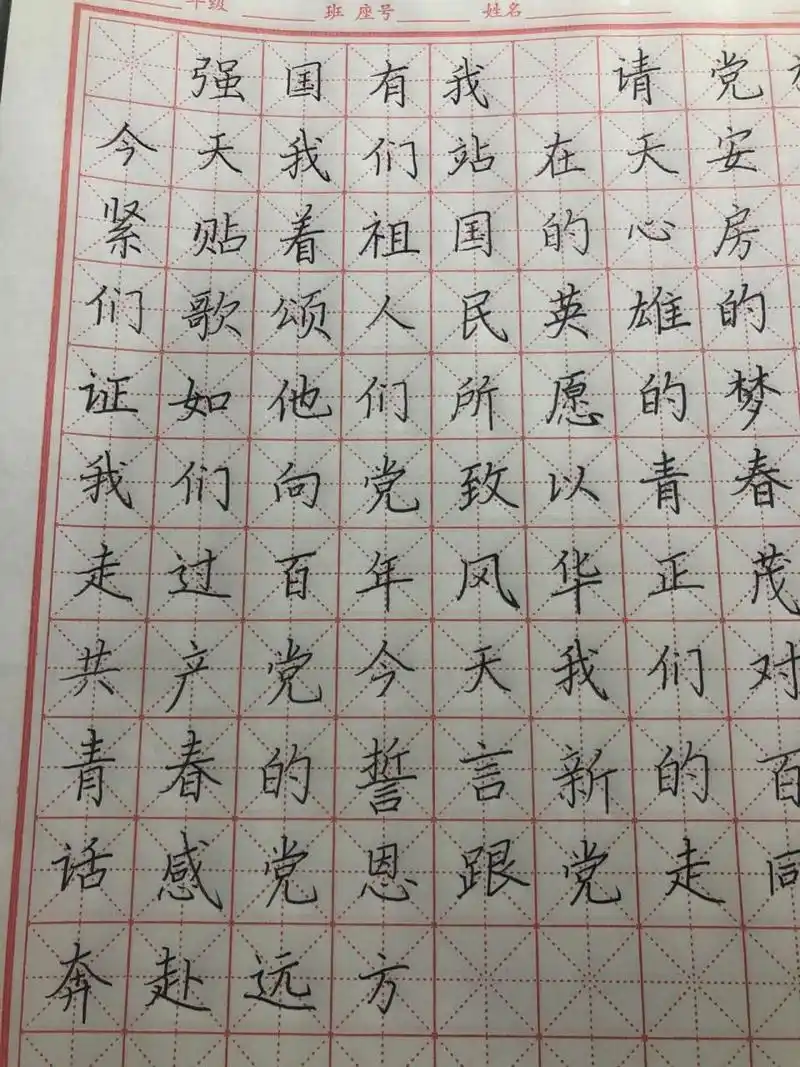 年级 班 座号 姓名
强国有我 请党
今天我们站在天安
紧贴着祖国的心房
们歌颂人民英雄的
证如他们所愿的梦
我们向党致以青春
走过百年风华正茂
共产党今天我们对
青春的誓言新的百
话感党恩跟党走同
奔赴远方